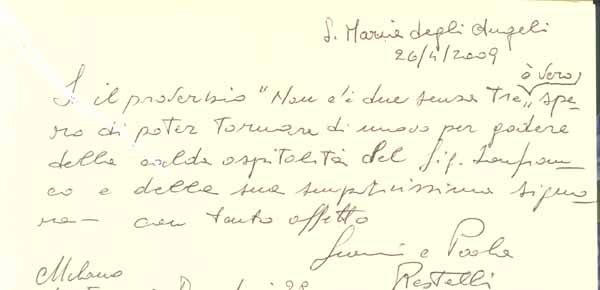 S. Maria degli Angeli
26/4/2009
è vero,
Se il proverbio "Non c'è due senza tre" spe-
ro di poter tornare di nuovo per godere
della calda ospitalità del Sig. Lanfran-
co e della sua simpaticissima signo-
ra - con tanto affetto
e Paola
Milano Restelli